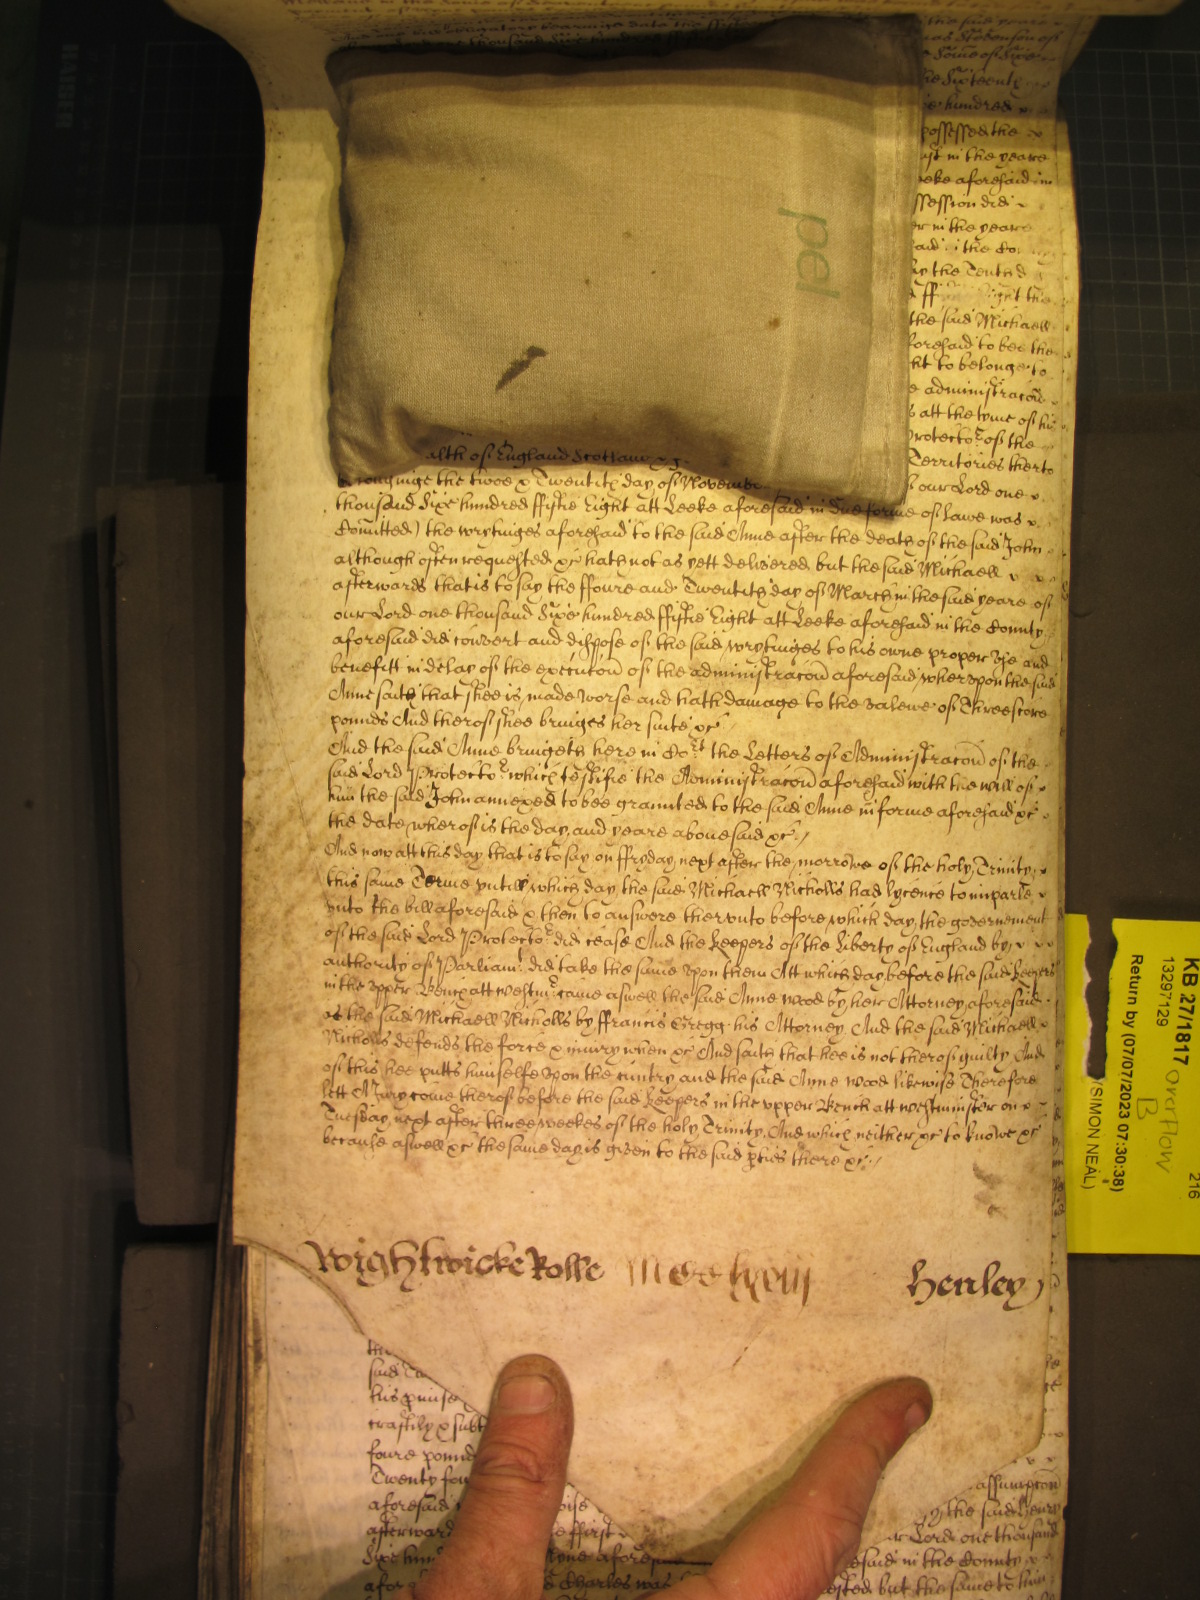 the said yeares
Stevenson of
Some of Sixe
Sixteenth
hundred
possessed the
in the yeare
Leeke aforesaid in
possession did
in the yeare
said in the Co
the Tenth d
the
the said Michaell
aforesaid to bee the
to belonge to
administracon
att the tyme of his
Protector of the
alth of England Scotland
Territories therto
belonginge the twoe & Twentith day of November
our Lord one
thousand Sixe hundred ffiftie Eight att Leeke aforesaid in due forme of Lawe was
Comitted) the wrytinges aforesaid to the said Anne after the death of the said John
although often requested &c hath not as yett delivered but the said Michaell
afterwards that is to say the ffoure and Twentith day of March in the said yeare of
our Lord one thousand Sixe hundred ffiftie Eight att Leeke aforesaid in the County
aforesaid did convert and dispose of the said wrytinges to his owne proper vse and
benefitt in delay of the execucon of the administracon aforesaid, whervpon the said
Anne saith that shee is made worse and hath damage to the valewe of Threescore
pounds And therof shee bringes her suite &c
And the said Anne bringeth here in Cort the Letters of Administracon of the
said Lord Protector which testifie the Administracon aforesaid with the will of
him the said John annexed to bee graunted to the said Anne in forme aforesaid &c
the date wherof is the day and yeare abovesaid &c
And now att this day that is to say on ffryday next after the morrowe of the holy Trinity
this same Terme vntill which day the said Michaell Nicholls had lycence to imparle
vnto the bill aforesaid & then to answere thervnto before which day the governement
of the said Lord Protector did cease And the keepers of the Liberty of England by
authority of Parliamt did take the same vpon them Att which day before the said keepers
in the vpper Bench att westmr came aswell the said Anne wood by her Attorney aforesaid
as the said Michaell Nicholls by ffrancis Gregg his Attorney And the said Michaell
Nicholls defends the force & iniury when &c And saith that hee is not therof guilty And
of this hee putts himselfe vpon the cuntry and the said Anne wood likewise Therefore
lett A Jury come therof before the said keepers in the vpper Bench att westminster on
Tuesday next after three weekes of the holy Trinity And which neither &c to knowe &c
because aswell &c the same day is given to the said pties there &c
Wightwicke Rolle
Henley
said
his pmise
craftily & subt
foure pound
Twenty fou
aforesaid
afterward
Sixe hun
afor
ffirst
aforesa
Charles was
assumpcon
the said Henry
Lord one thousand
said in the County
but the same to him
pel
KB 27/1817 overflow
B
216
13297129
Return by (07/07/2023 07:30:38)
(SIMON NEAL)